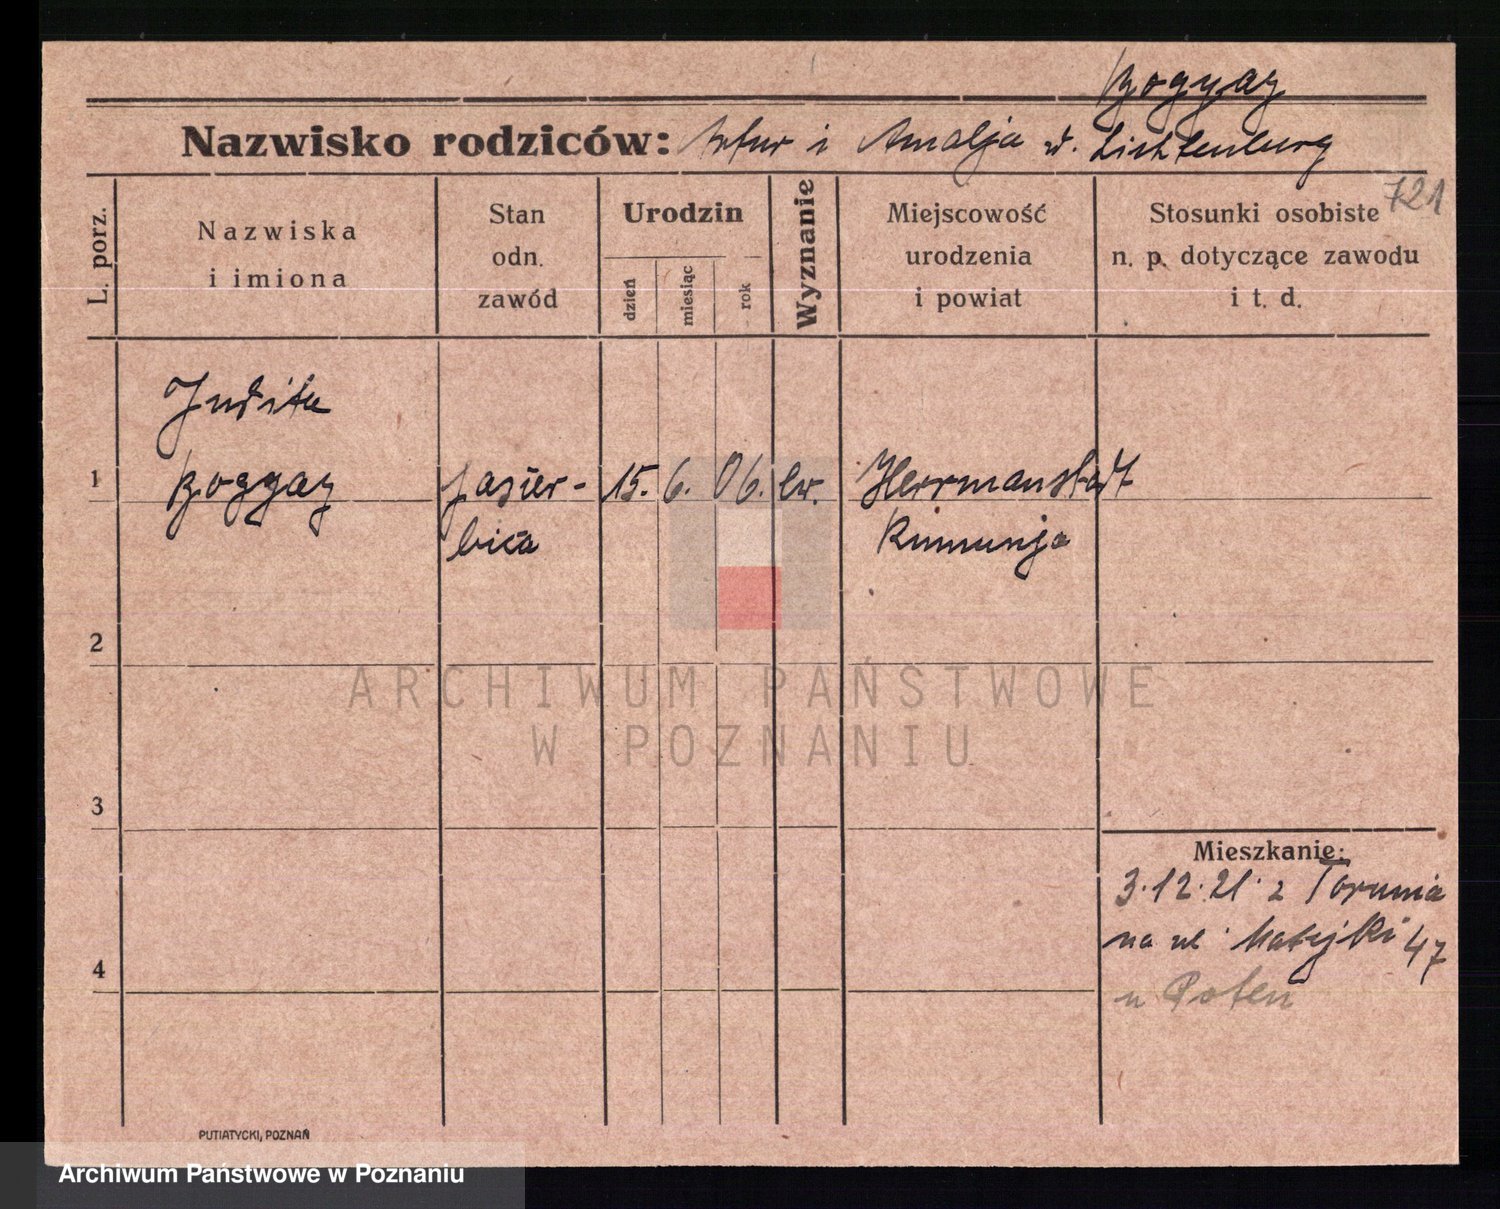 Bogyay
Nazwisko rodziców: Artur i Amalja d. Lichtenburg
721
L. porz.
Nazwiska
i imiona
Stan
odn.
zawód
Urodzin
dzień
miesiąc
rok
Wyznanie
Miejscowość
urodzenia
i powiat
Stosunki osobiste
n. p. dotyczące zawodu
i t. d.
Judita
1 Boggay pasier- 15. 6. 06. ew. Herrmanstadt
bica Rumunja
2
ARCHIWUM PAŃSTWOWE
W POZNANIU
3
Mieszkanie:
3.12.21. z Torunia
na ul. Matejki 47
4
u
PUTIATYCKI, POZNAŃ
Archiwum Państwowe w Poznaniu